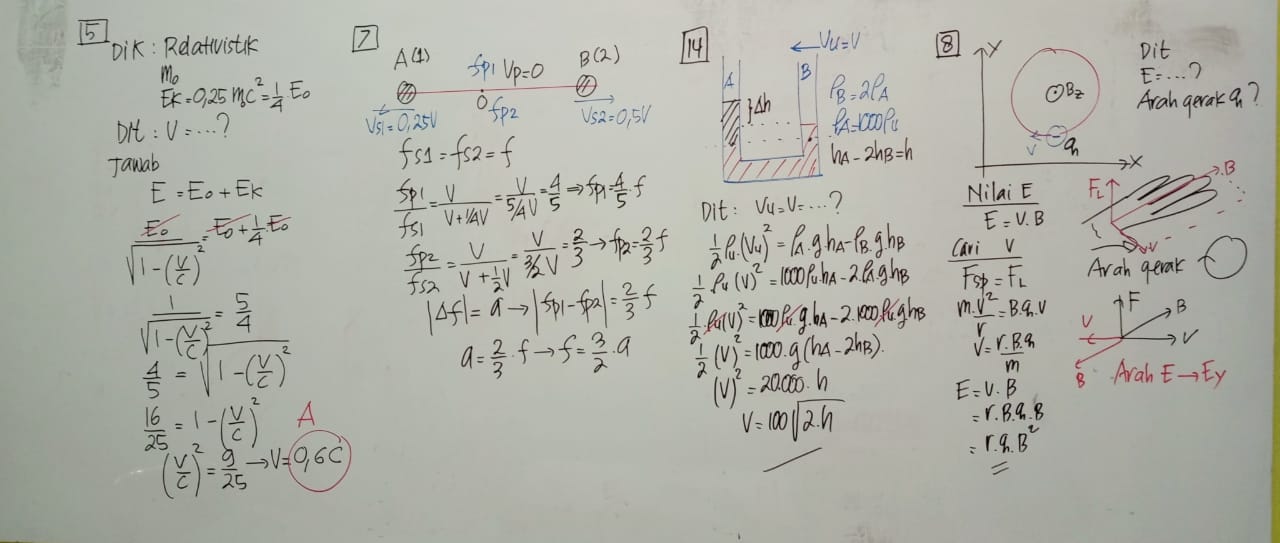 5
Dik : Relativistik
m₀
EK = 0,25 m₀c² = 1/4 E₀
Dit : V = ....?
Jawab
E = E₀ + EK
E₀/√(1-(V/C)²) = E₀ + 1/4 E₀
1/√(1-(V/C)²) = 5/4
4/5 = √(1-(V/C)²)
16/25 = 1-(V/C)²
(V/C)² = 9/25 → V = 0,6C
A
7
A(1) fp1 Vp=0 B(2)
Vs1=0,25V O fp2 Vs2=0,5V
fs1 = fs2 = f
fp1/fs1 = V/(V+1/4V) = V/(5/4V) = 4/5 ⇒ fp1 = 4/5 f
fp2/fs2 = V/(V+1/2V) = V/(3/2V) = 2/3 → fp2 = 2/3 f
|Δf| = a → |fp1-fp2| = 2/3 f
a = 2/3 . f → f = 3/2 . a
14
Vu=V
A B
Δh
ρB = 2ρA
ρA = 1000ρu
hA - 2hB = h
Dit : Vu = V = ....?
1/2 ρu.(Vu)² = ρA.g.hA - ρB.g.hB
1/2 ρu(V)² = 1000ρu.hA - 2.ρA.g.hB
1/2 ρu(V)² = 1000ρu.g.hA - 2.1000.ρu.g.hB
1/2 (V)² = 1000.g(hA-2hB).
(V)² = 20.000.h
V = 100√2.h
8
Y
Bz
V q
X
Dit
E = ...?
Arah gerak q ?
Nilai E
E = V.B
Cari V
Fsp = FL
m.V²/r = B.q.V
V = r.B.q/m
E = V.B
= r.B.q.B
= r.q.B²
FL B
V
Arah gerak
F B
V V
B
Arah E → Ey